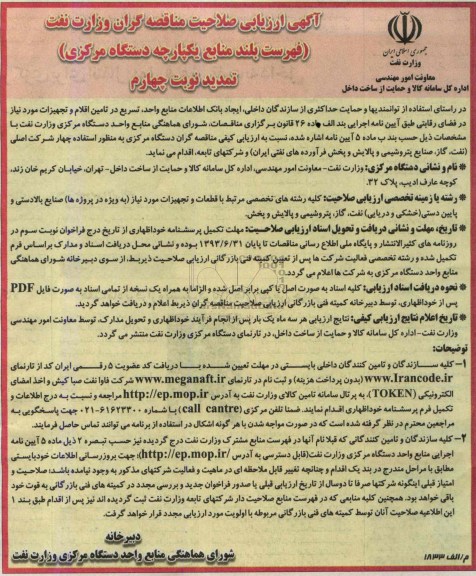 آگهی ارزیابی صلاحیت مناقصه گران وزارت نفت
(فهرست بلند منابع یکپارچه دستگاه مرکزی)
تمدید نوبت چهارم
جمهوری اسلامی ایران
وزارت نفت
معاونت امور مهندسی
اداره کل سامانه کالا و حمایت از ساخت داخل
در راستای استفاده از توانمندیها و حمایت حداکثری از سازندگان داخلی، ایجاد بانک اطلاعات منابع واحد، تسریع در تامین اقلام و تجهیزات مورد نیاز
در فضای رقابتی طبق آیین نامه اجرایی بند الف ماده ۲۶ قانون برگزاری مناقصات، شورای هماهنگی منابع واحد دستگاه مرکزی وزارت نفت با
مشخصات ذیل حسب بند ب ماده ۵ آیین نامه اشاره شده، نسبت به ارزیابی کیفی مناقصه گران دستگاه مرکزی به منظور استفاده چهار شرکت اصلی
(نفت، گاز، صنایع پتروشیمی و پالایش و پخش فرآورده های نفتی ایران) و شرکتهای تابعه، اقدام می نماید.
* نام و نشانی دستگاه مرکزی: وزارت نفت- معاونت امور مهندسی، اداره کل سامانه کالا و حمایت از ساخت داخل- تهران، خیابان کریم خان زند،
کوچه عارف ادیب، پلاک ۳۲.
* رشته یا زمینه تخصصی ارزیابی صلاحیت: کلیه رشته های تخصصی مرتبط با قطعات و تجهیزات مورد نیاز (به ویژه در پروژه ها) صنایع بالادستی و
پایین دستی (خشکی و دریایی) نفت، گاز، پتروشیمی و پالایش و پخش.
* تاریخ، مهلت و نشانی دریافت و تحویل اسناد ارزیابی صلاحیت: مهلت تکمیل پرسشنامه خوداظهاری از تاریخ درج فراخوان نوبت سوم در
روزنامه های کثیرالانتشار و پایگاه ملی اطلاع رسانی مناقصات تا پایان ۱۳۹۳/۶/۳۱ بوده و نشانی محل دریافت اسناد و مدارک براساس فرم
تکمیل شده و رشته تخصصی فعالیت شرکت ها پس از تعیین کمیته فنی بازرگانی ارزیابی صلاحیت ذیربط، از سوی دبیرخانه شورای هماهنگی
منابع واحد دستگاه مرکزی به شرکت ها اعلام می گردد.
* نحوه دریافت اسناد ارزیابی: کلیه اسناد به صورت اصل یا کپی برابر اصل شده و الزاما به همراه یک نسخه از تمامی اسناد به صورت فایل PDF
پس از خوداظهاری، توسط دبیرخانه کمیته فنی بازرگانی ارزیابی صلاحیت مناقصه گران ذیربط اعلام و دریافت خواهد گردید.
* تاریخ اعلام نتایج ارزیابی کیفی: نتایج ارزیابی هر سه ماه یک بار پس از انجام فرآیند خوداظهاری و تحویل مدارک، توسط معاونت امور مهندسی
وزارت نفت- اداره کل سامانه کالا و حمایت از ساخت داخل، در تارنمای دستگاه مرکزی وزارت نفت منتشر می گردد.
توضیحات:
۱- کلیه سازندگان و تامین کنندگان داخلی بایستی در مهلت تعیین شده با دریافت کد عضویت ۵ رقمی ایران کد از تارنمای
www.Irancode.ir (بدون پرداخت هزینه) و ثبت نام در تارنمای www.meganaft.ir شرکت فاوا نفت صبا کیش و اخذ امضای
الکترونیکی (TOKEN)، به پرتال سامانه تامین کالای وزارت نفت به آدرس http://ep.mop.ir مراجعه و نسبت به درج اطلاعات و
تکمیل فرم پرسشنامه خوداظهاری اقدام نمایند. ضمنا تلفن مرکزی (call cantre) با شماره ۶۱۶۲۳۳۰۰-۰۲۱ جهت پاسخگویی به
مراجعین محترم در نظر گرفته شده است که در صورت مواجه شدن با هر گونه اشکال در استفاده از برنامه می توانند تماس حاصل فرمایند.
۲- کلیه سازندگان و تامین کنندگانی که قبلا نام آنها در فهرست منابع مشترک وزارت نفت درج گردیده نیز حسب تبصره ۲ ذیل ماده ۵ آیین نامه
اجرایی منابع واحد دستگاه مرکزی وزارت نفت (قابل دسترسی به آدرس http://ep.mop.ir/) جهت بروزرسانی اطلاعات خود بایستی
مطابق با مراحل مندرج در بند یک اقدام و چنانچه تغییر قابل ملاحظه ای در ماهیت و فعالیت شرکتهای مذکور به وجود نیامده باشد؛ صلاحیت و
امتیاز قبلی اینگونه شرکتها صرفا تا دوسال از تاریخ ارزیابی قبلی یا صدور فراخوان جدید و بررسی مجدد در کمیته های فنی بازرگانی به قوت خود
باقی خواهد بود. همچنین کلیه منابعی که در فهرست منابع صلاحیت دار شرکتهای تابعه وزارت نفت ثبت گردیده اند نیز پس از اقدام طبق بند ۱
این اطلاعیه صلاحیت آنان توسط کمیته های فنی بازرگانی مربوطه با اولویت مورد ارزیابی مجدد قرار خواهد گرفت.
دبیرخانه
شورای هماهنگی منابع واحد دستگاه مرکزی وزارت نفت
م/الف ۱۸۳۳